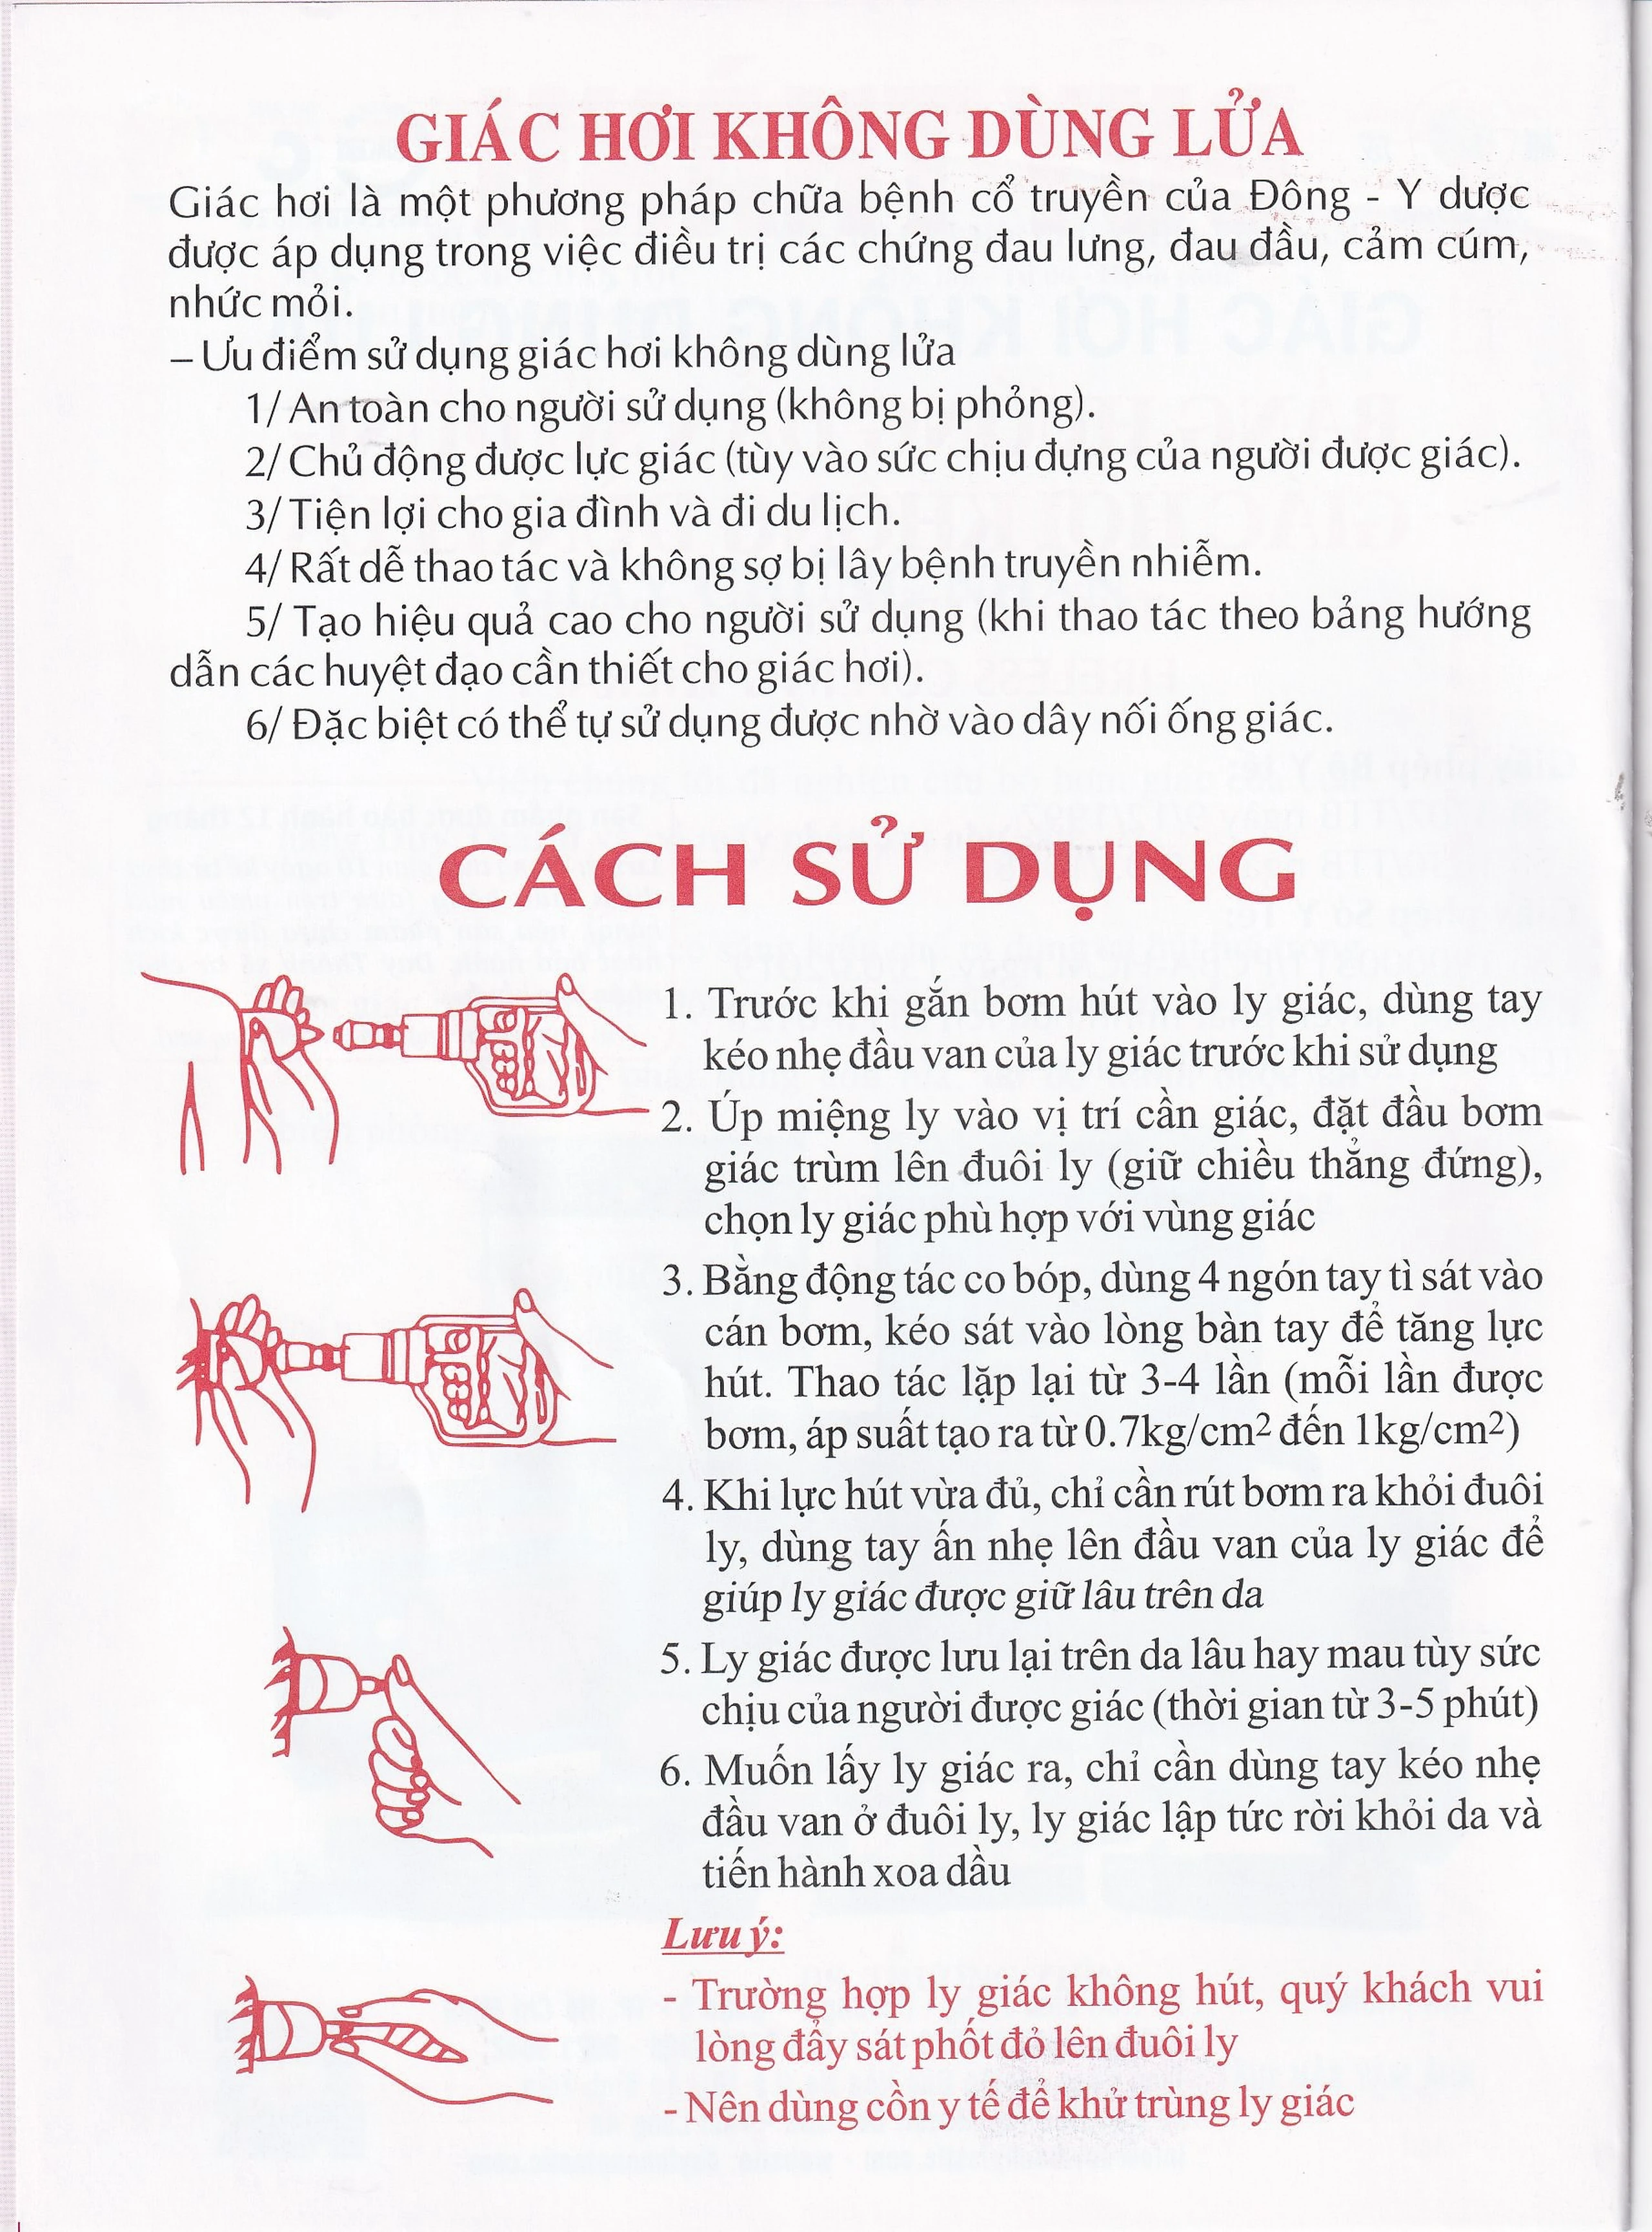 GIÁC HƠI KHÔNG DÙNG LỬA
Giác hơi là một phương pháp chữa bệnh cổ truyền của Đông - Y dược
được áp dụng trong việc điều trị các chứng đau lưng, đau đầu, cảm cúm,
nhức mỏi.
– Ưu điểm sử dụng giác hơi không dùng lửa
1/ An toàn cho người sử dụng (không bị phỏng).
2/ Chủ động được lực giác (tùy vào sức chịu đựng của người được giác).
3/ Tiện lợi cho gia đình và đi du lịch.
4/ Rất dễ thao tác và không sợ bị lây bệnh truyền nhiễm.
5/ Tạo hiệu quả cao cho người sử dụng (khi thao tác theo bảng hướng
dẫn các huyệt đạo cần thiết cho giác hơi).
6/ Đặc biệt có thể tự sử dụng được nhờ vào dây nối ống giác.
CÁCH SỬ DỤNG
1. Trước khi gắn bơm hút vào ly giác, dùng tay
kéo nhẹ đầu van của ly giác trước khi sử dụng
2. Úp miệng ly vào vị trí cần giác, đặt đầu bơm
giác trùm lên đuôi ly (giữ chiều thẳng đứng),
chọn ly giác phù hợp với vùng giác
3. Bằng động tác co bóp, dùng 4 ngón tay tì sát vào
cán bơm, kéo sát vào lòng bàn tay để tăng lực
hút. Thao tác lặp lại từ 3-4 lần (mỗi lần được
bơm, áp suất tạo ra từ 0.7kg/cm2 đến 1kg/cm2)
4. Khi lực hút vừa đủ, chỉ cần rút bơm ra khỏi đuôi
ly, dùng tay ấn nhẹ lên đầu van của ly giác để
giúp ly giác được giữ lâu trên da
5. Ly giác được lưu lại trên da lâu hay mau tùy sức
chịu của người được giác (thời gian từ 3-5 phút)
6. Muốn lấy ly giác ra, chỉ cần dùng tay kéo nhẹ
đầu van ở đuôi ly, ly giác lập tức rời khỏi da và
tiến hành xoa dầu
Lưu ý:
- Trường hợp ly giác không hút, quý khách vui
lòng đẩy sát phốt đỏ lên đuôi ly
- Nên dùng cồn y tế để khử trùng ly giác